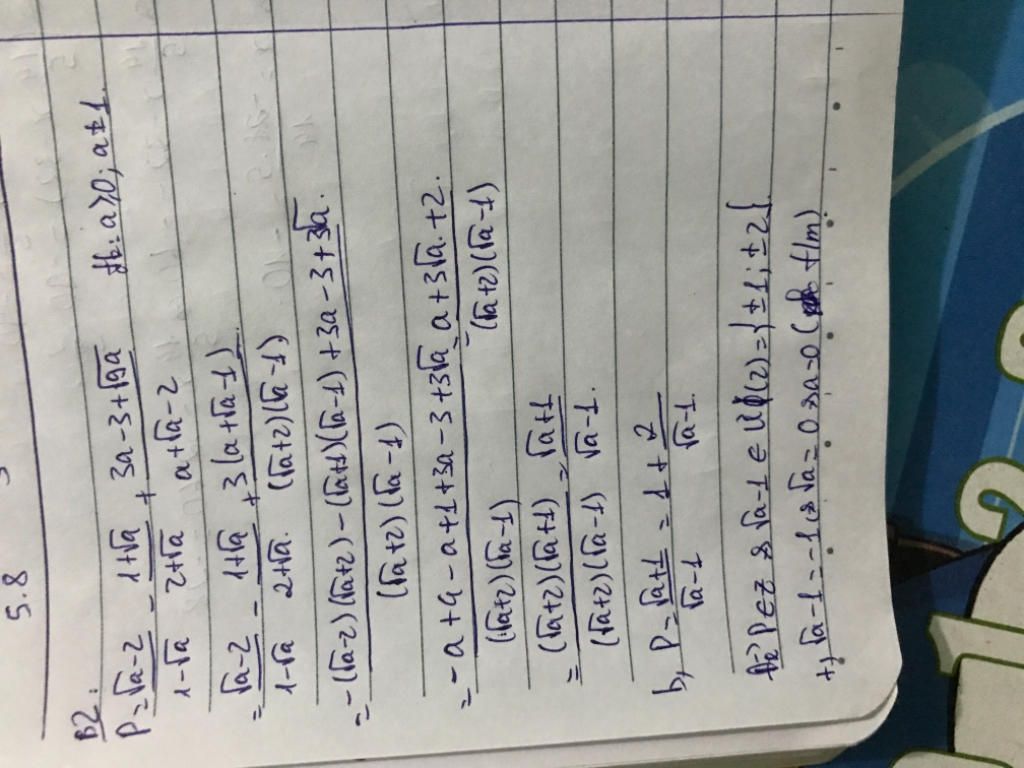 5.8
B2:
P = (√a-2)/(1-√a) - (1+√a)/(2+√a) + (3a-3+√9a)/(a+√a-2) đk: a≥0; a≠1.
= (√a-2)/(1-√a) - (1+√a)/(2+√a) + 3(a+√a-1)/(√a+2)(√a-1)
= (-(√a-2)(√a+2) - (√a+1)(√a-1) + 3a-3+3√a)/(√a+2)(√a-1)
= (-a+4-a+1+3a-3+3√a)/(√a+2)(√a-1) = (a+3√a+2)/(√a+2)(√a-1)
= (√a+2)(√a+1)/(√a+2)(√a-1) = (√a+1)/(√a-1).
b, P = (√a+1)/(√a-1) = 1 + 2/(√a-1)
Để P∈Z ⇔ √a-1 ∈ Ư(2) = {±1; ±2}
+, √a-1 = -1 ⇔ √a = 0 ⇔ a=0 (tm)